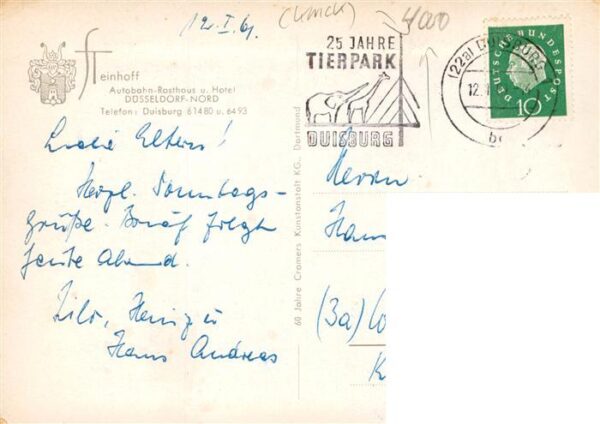 12.I.61
4000
Steinhoff
Autobahn-Rasthaus u. Hotel
DÜSSELDORF-NORD
Telefon: Duisburg 61480 u. 6493
25 JAHRE
TIERPARK
DUISBURG
(22a) DUISBURG
12.
DEUTSCHE BUNDESPOST
10
Liebe Eltern!
Herzl. Sonntags-
grüße. Brief folgt
heute Abend.
Heinz u
Hans Andreas
60 Jahre Cramers Kunstanstalt KG., Dortmund
Herrn
(3a)